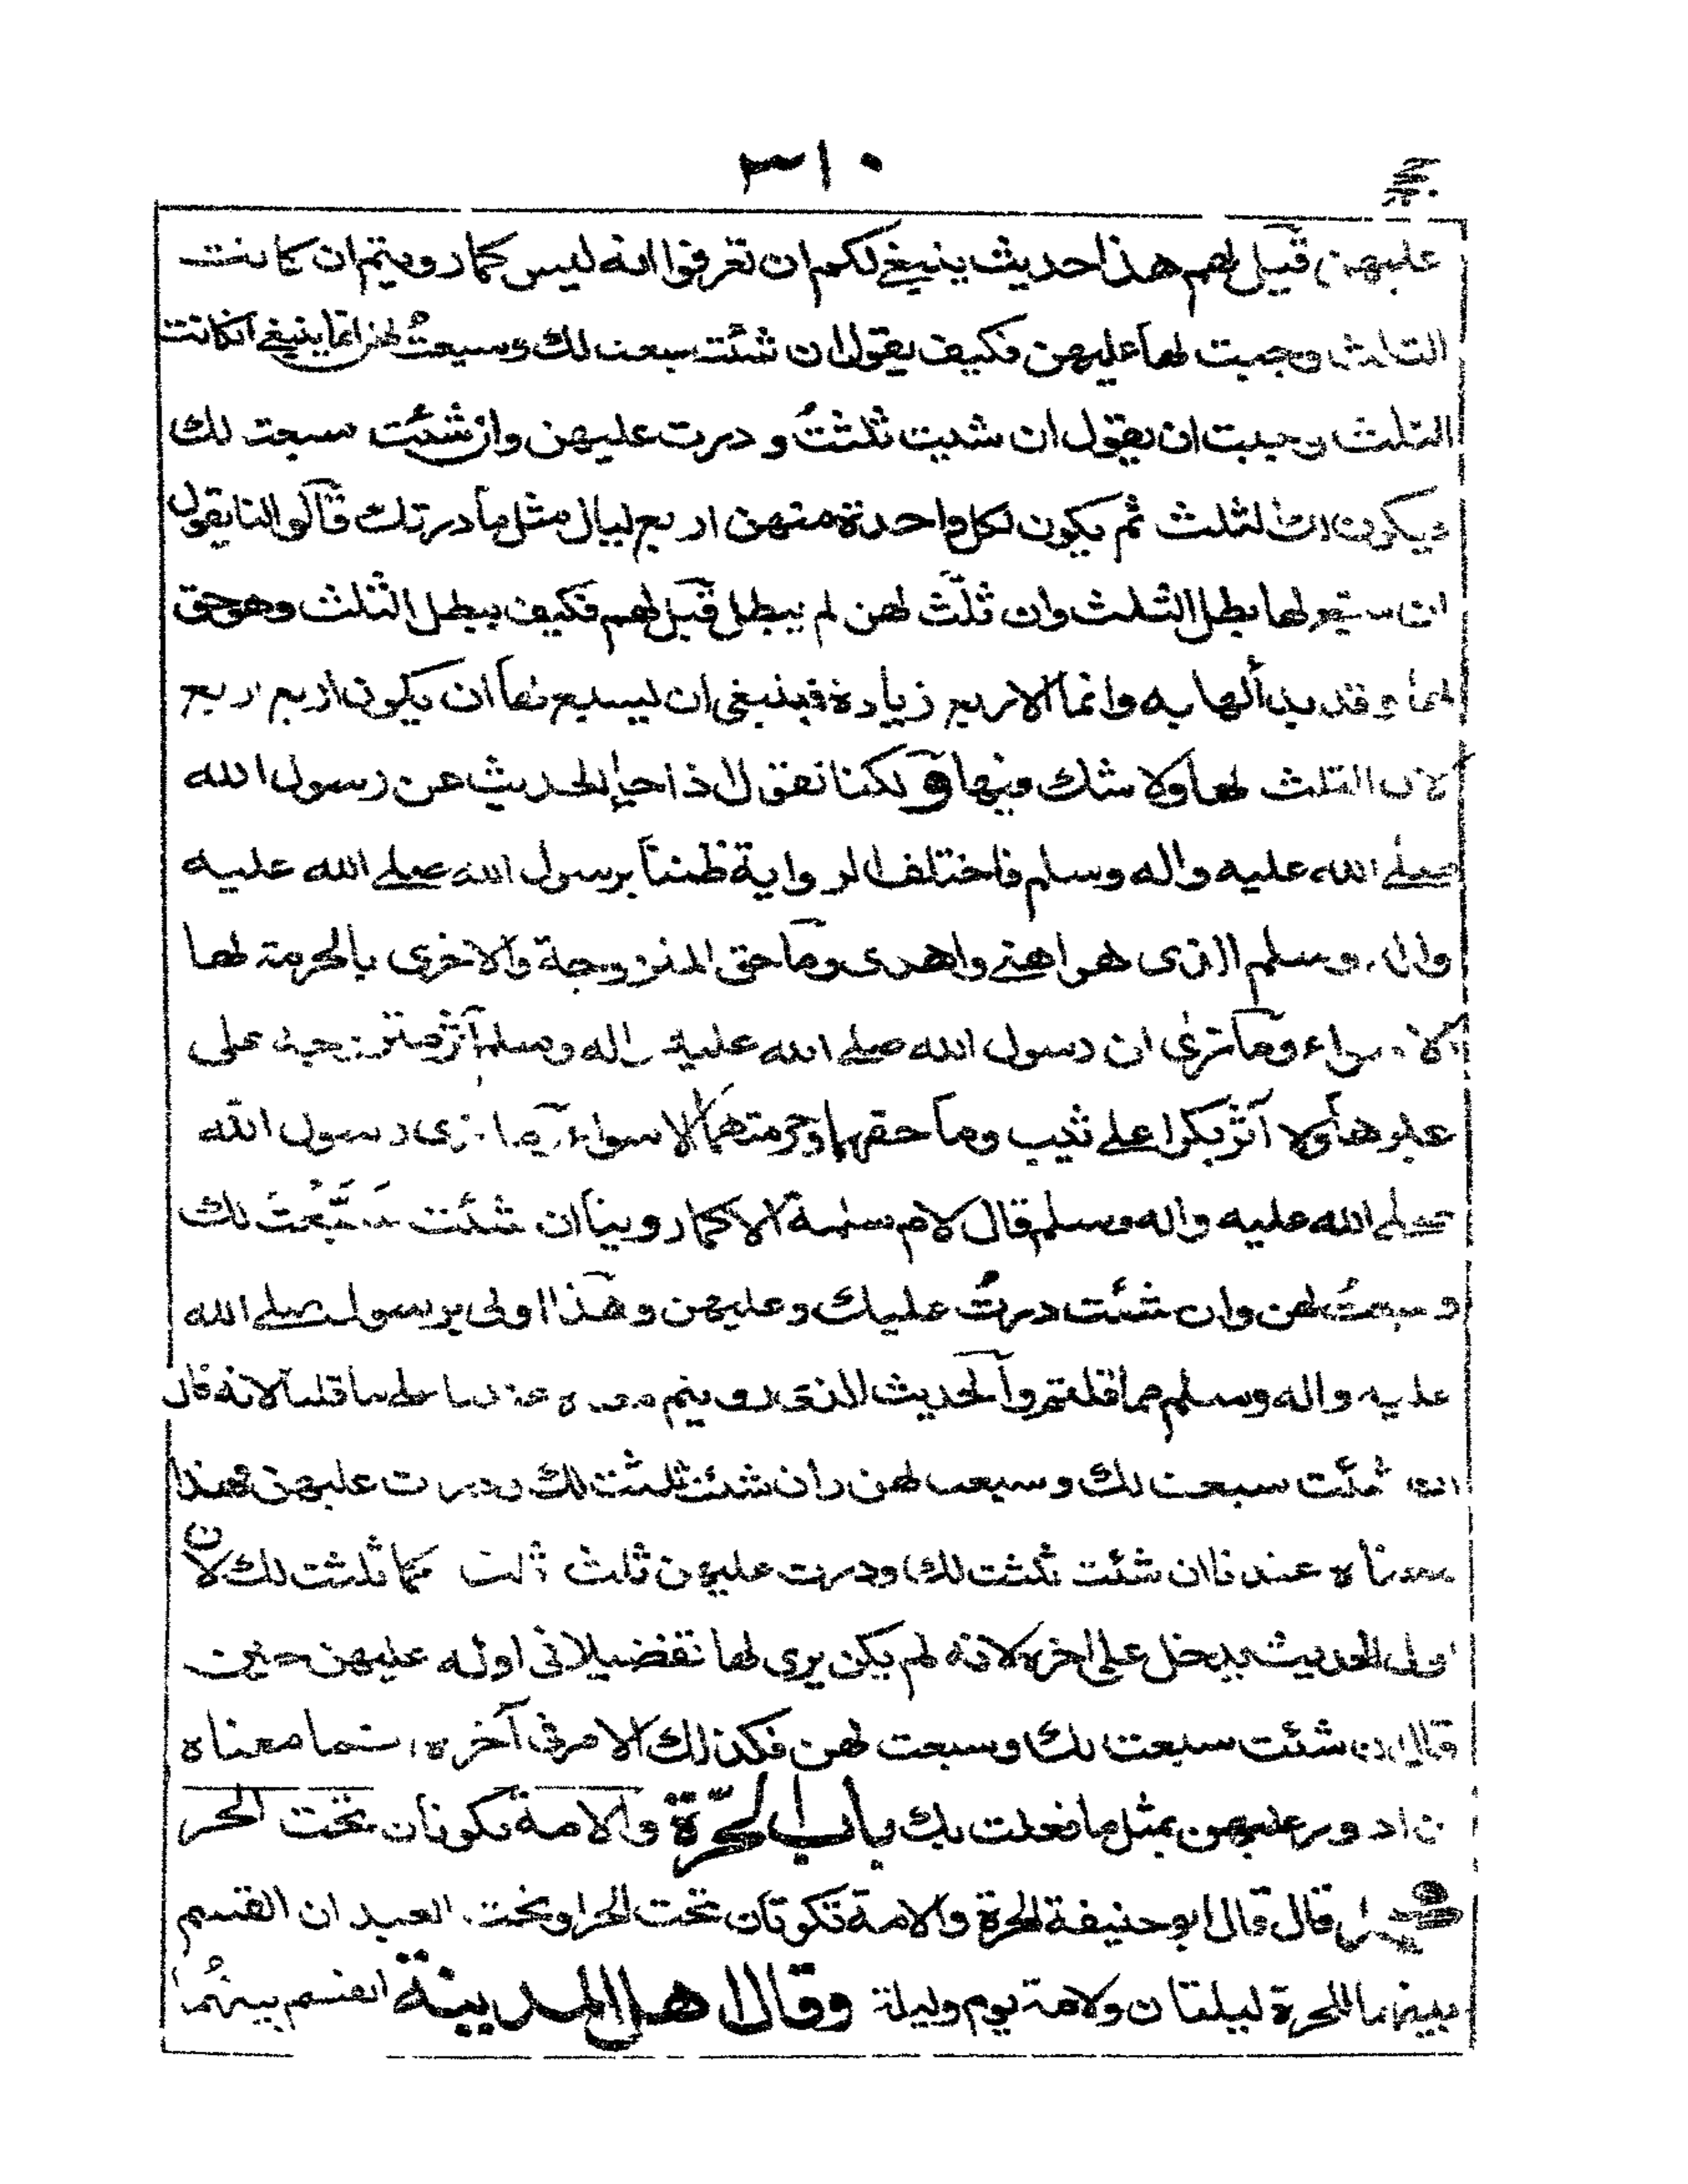 ٣١٠
عليهن قيل لهم هذا حديث ينبغي لكم ان تعرفوا انه ليس كما رويتم ان كانت
الثلث وجبت لها عليهن فكيف يقول ان شئت سبعت لك وسبعت لهن انما ينبغي انكانت
الثلث وجبت ان يقول ان شيت ثلثت ودرت عليهن وان شئت سبعت لك
فيكون لك الثلث ثم يكون لكل واحدة منهن اربع ليال مثل ما درت لك قالوا انا نقول
ان سبع لها بطل الثلث وان ثلث لهن لم يبطل قيل لهم فكيف يبطل الثلث وهو حق
لها وقد بدألها به وانما الاربع زيادة فينبغي ان ليسبع لها ان يكون اربع اربع
لان الثلث لها ولا شك فيها ولكنا نقول اذا جاء الحديث عن رسول الله
صلى الله عليه واله وسلم فاختلف الرواية ظننا برسول الله صلى الله عليه
واله وسلم الذى هو اهنى واهدى وما حق المتزوجة والاخرى بالحرمة لها
الا سواء وما نرى ان رسول الله صلى الله عليه واله وسلم آثر متزوجة على
غيرها ولا آثر بكرا على ثيب وما حقهما وحرمتهما الا سواء وما نرى رسول الله
صلى الله عليه واله وسلم قال لام سلمة الا كما روينا ان شئت سبّعت لك
وسبعت لهن وان شئت درت عليك وعليهن وهذا اولى برسول صلى الله
عليه واله وسلم مما قلتم والحديث الذى رويتم عندنا على ما قلنا لانه قال
ان شئت سبعت لك وسبعت لهن وان شئت ثلثت لك ودرت عليهن فهذا
معناه عندنا ان شئت ثلثت لك ودرت عليهن ثلث ثلث كما ثلثت لك لان
اول الحديث يدخل على اخره لانه لم يكن يرى لها تفضيلا فى اوله عليهن حين
قال ان شئت سبعت لك وسبعت لهن فكذلك الامر فى آخره انما معناه
ان ادور عليهن بمثل ما فعلت بك باب الحرّة والامة تكونان تحت الحر
محمد قال قال ابو حنيفة الحرة والامة تكونان تحت الحر او تحت العبد ان القسم
بينهما للحرة ليلتان ولامة يوم وليلة وقال اهل المدينة القسم بينهما